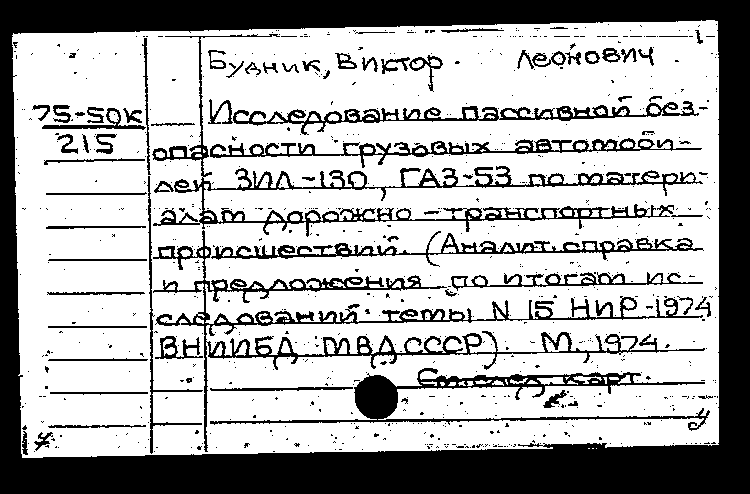 Будник, Виктор Леонович
75-50к
215
Исследование пассивной без-
опасности грузовых автомоби-
лей ЗИЛ-130, ГАЗ-53 по матери-
алам дорожно-транспортных
происшествий. (Аналит. справка
и предложения по итогам ис-
следований темы N 15 НИР-1974
ВНИИБД МВД СССР). М., 1974.
См. след. карт.